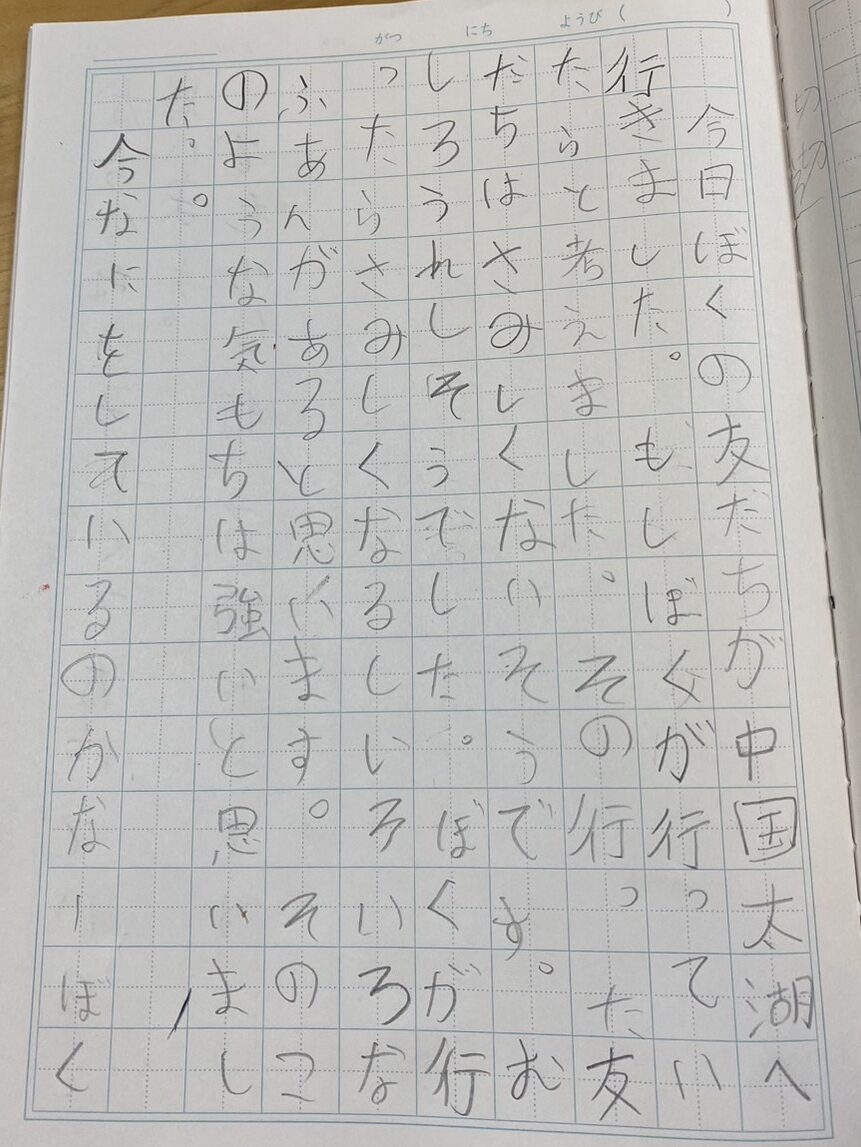 がつ にち ようび ( )
今日ぼくの友だちが中国太湖へ
行きました。もしぼくが行ってい
たらと考えました。その行った友
だちはさみしくないそうです。む
しろうれしそうでした。ぼくが行
ったらさみしくなるしいろいろな
ふあんがあると思います。そのこ
のような気もちは強いと思いまし
た。。
今なにをしているのかなーぼく